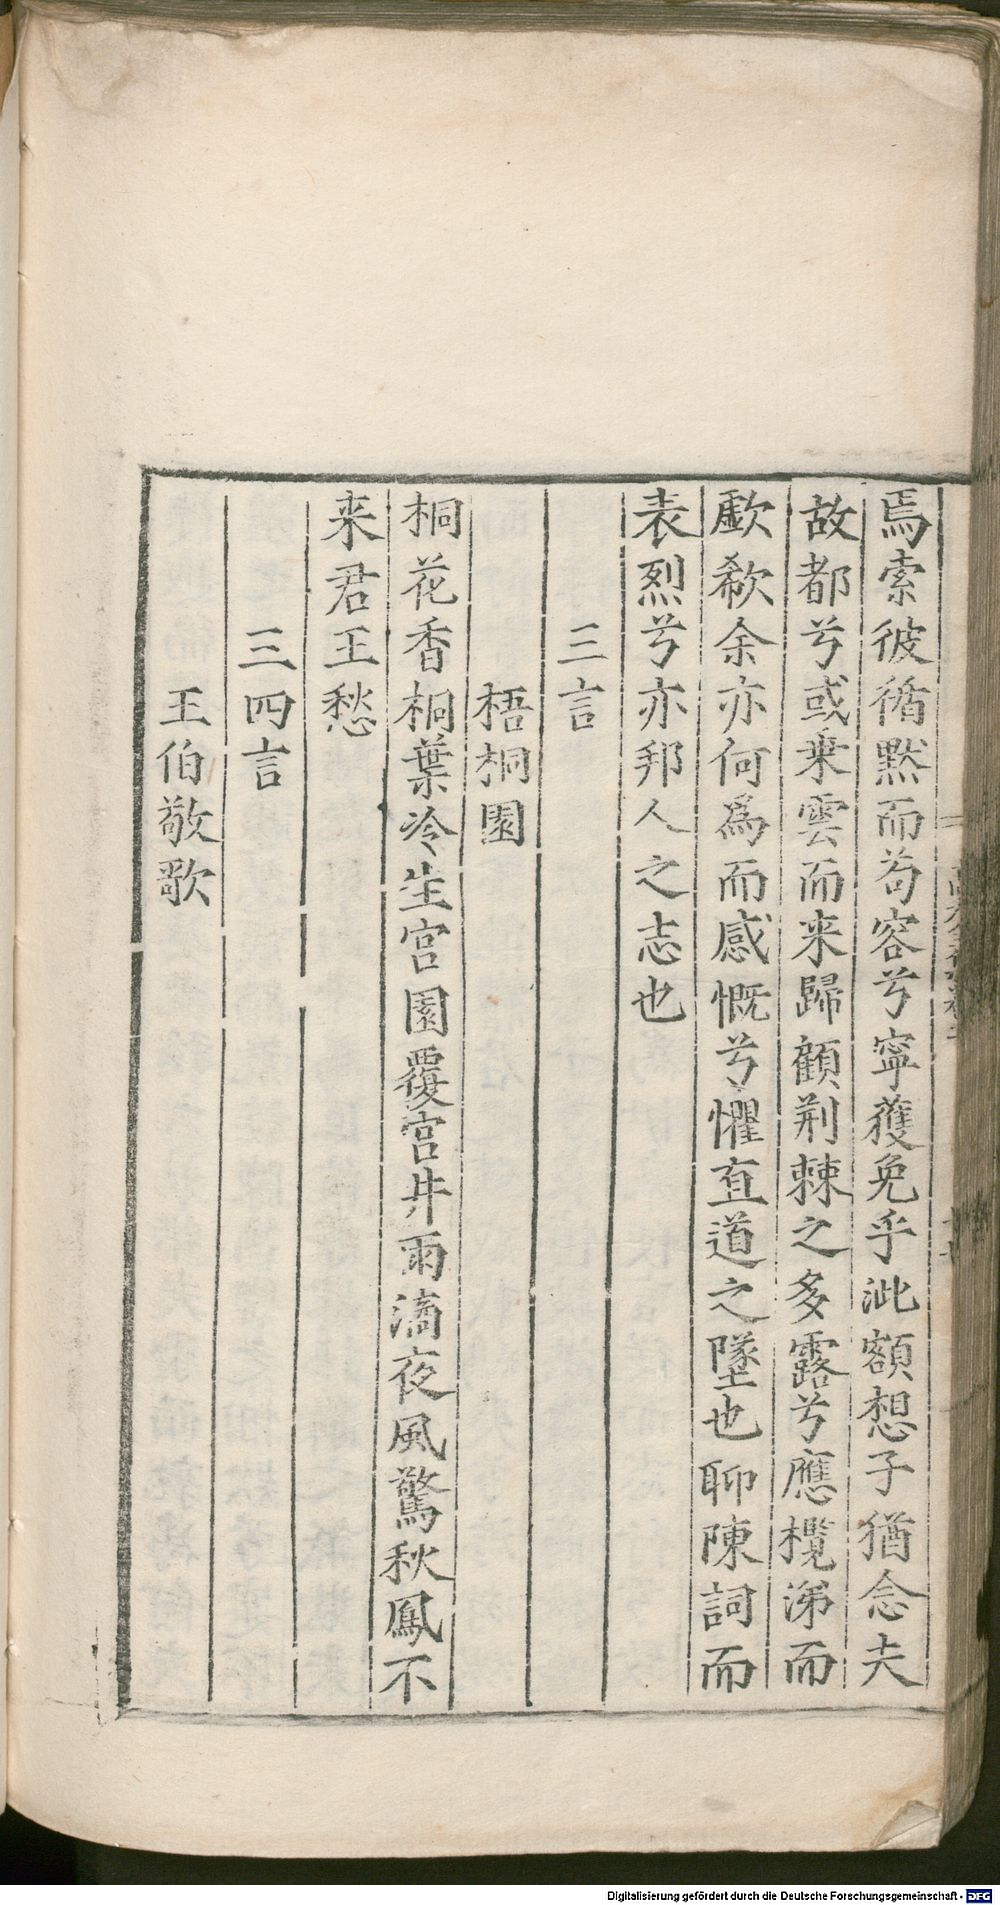 焉索彼循黙而苟容兮寧獲免乎泚額想子猶念夫
故都兮或乗雲而来歸顧荆棘之多露兮應欖涕而
歔欷余亦何爲而感慨兮懼直道之墜也聊陳詞而
表烈兮亦邦人之志也
三言
梧桐園
桐花香桐葉冷生宫園覆宫井雨滴夜風驚秋鳳不
来君王愁
三四言
王伯敬歌
Digitalisierung gefördert durch die Deutsche Forschungsgemeinschaft - DFG